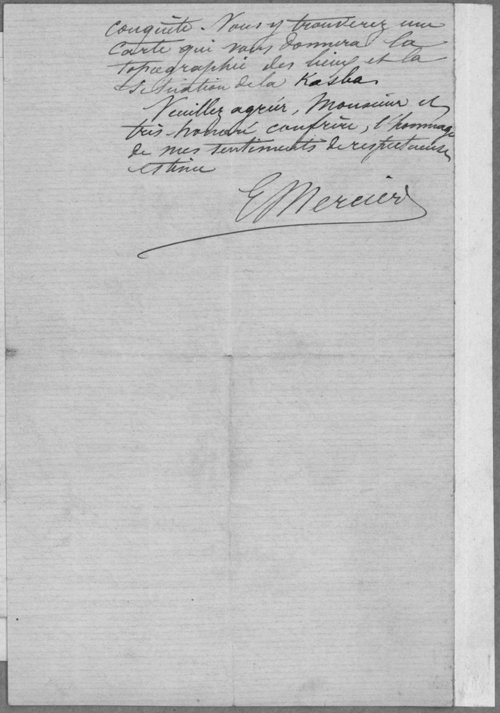 conquête. Vous y trouverez une
Carte qui vous donnera la
topographie des lieux et la
situation de la Kasba
Veuillez agréer, Monsieur et
très-honoré confrère, l'hommage
de mes sentiments de respectueuse
estime
E Mercier